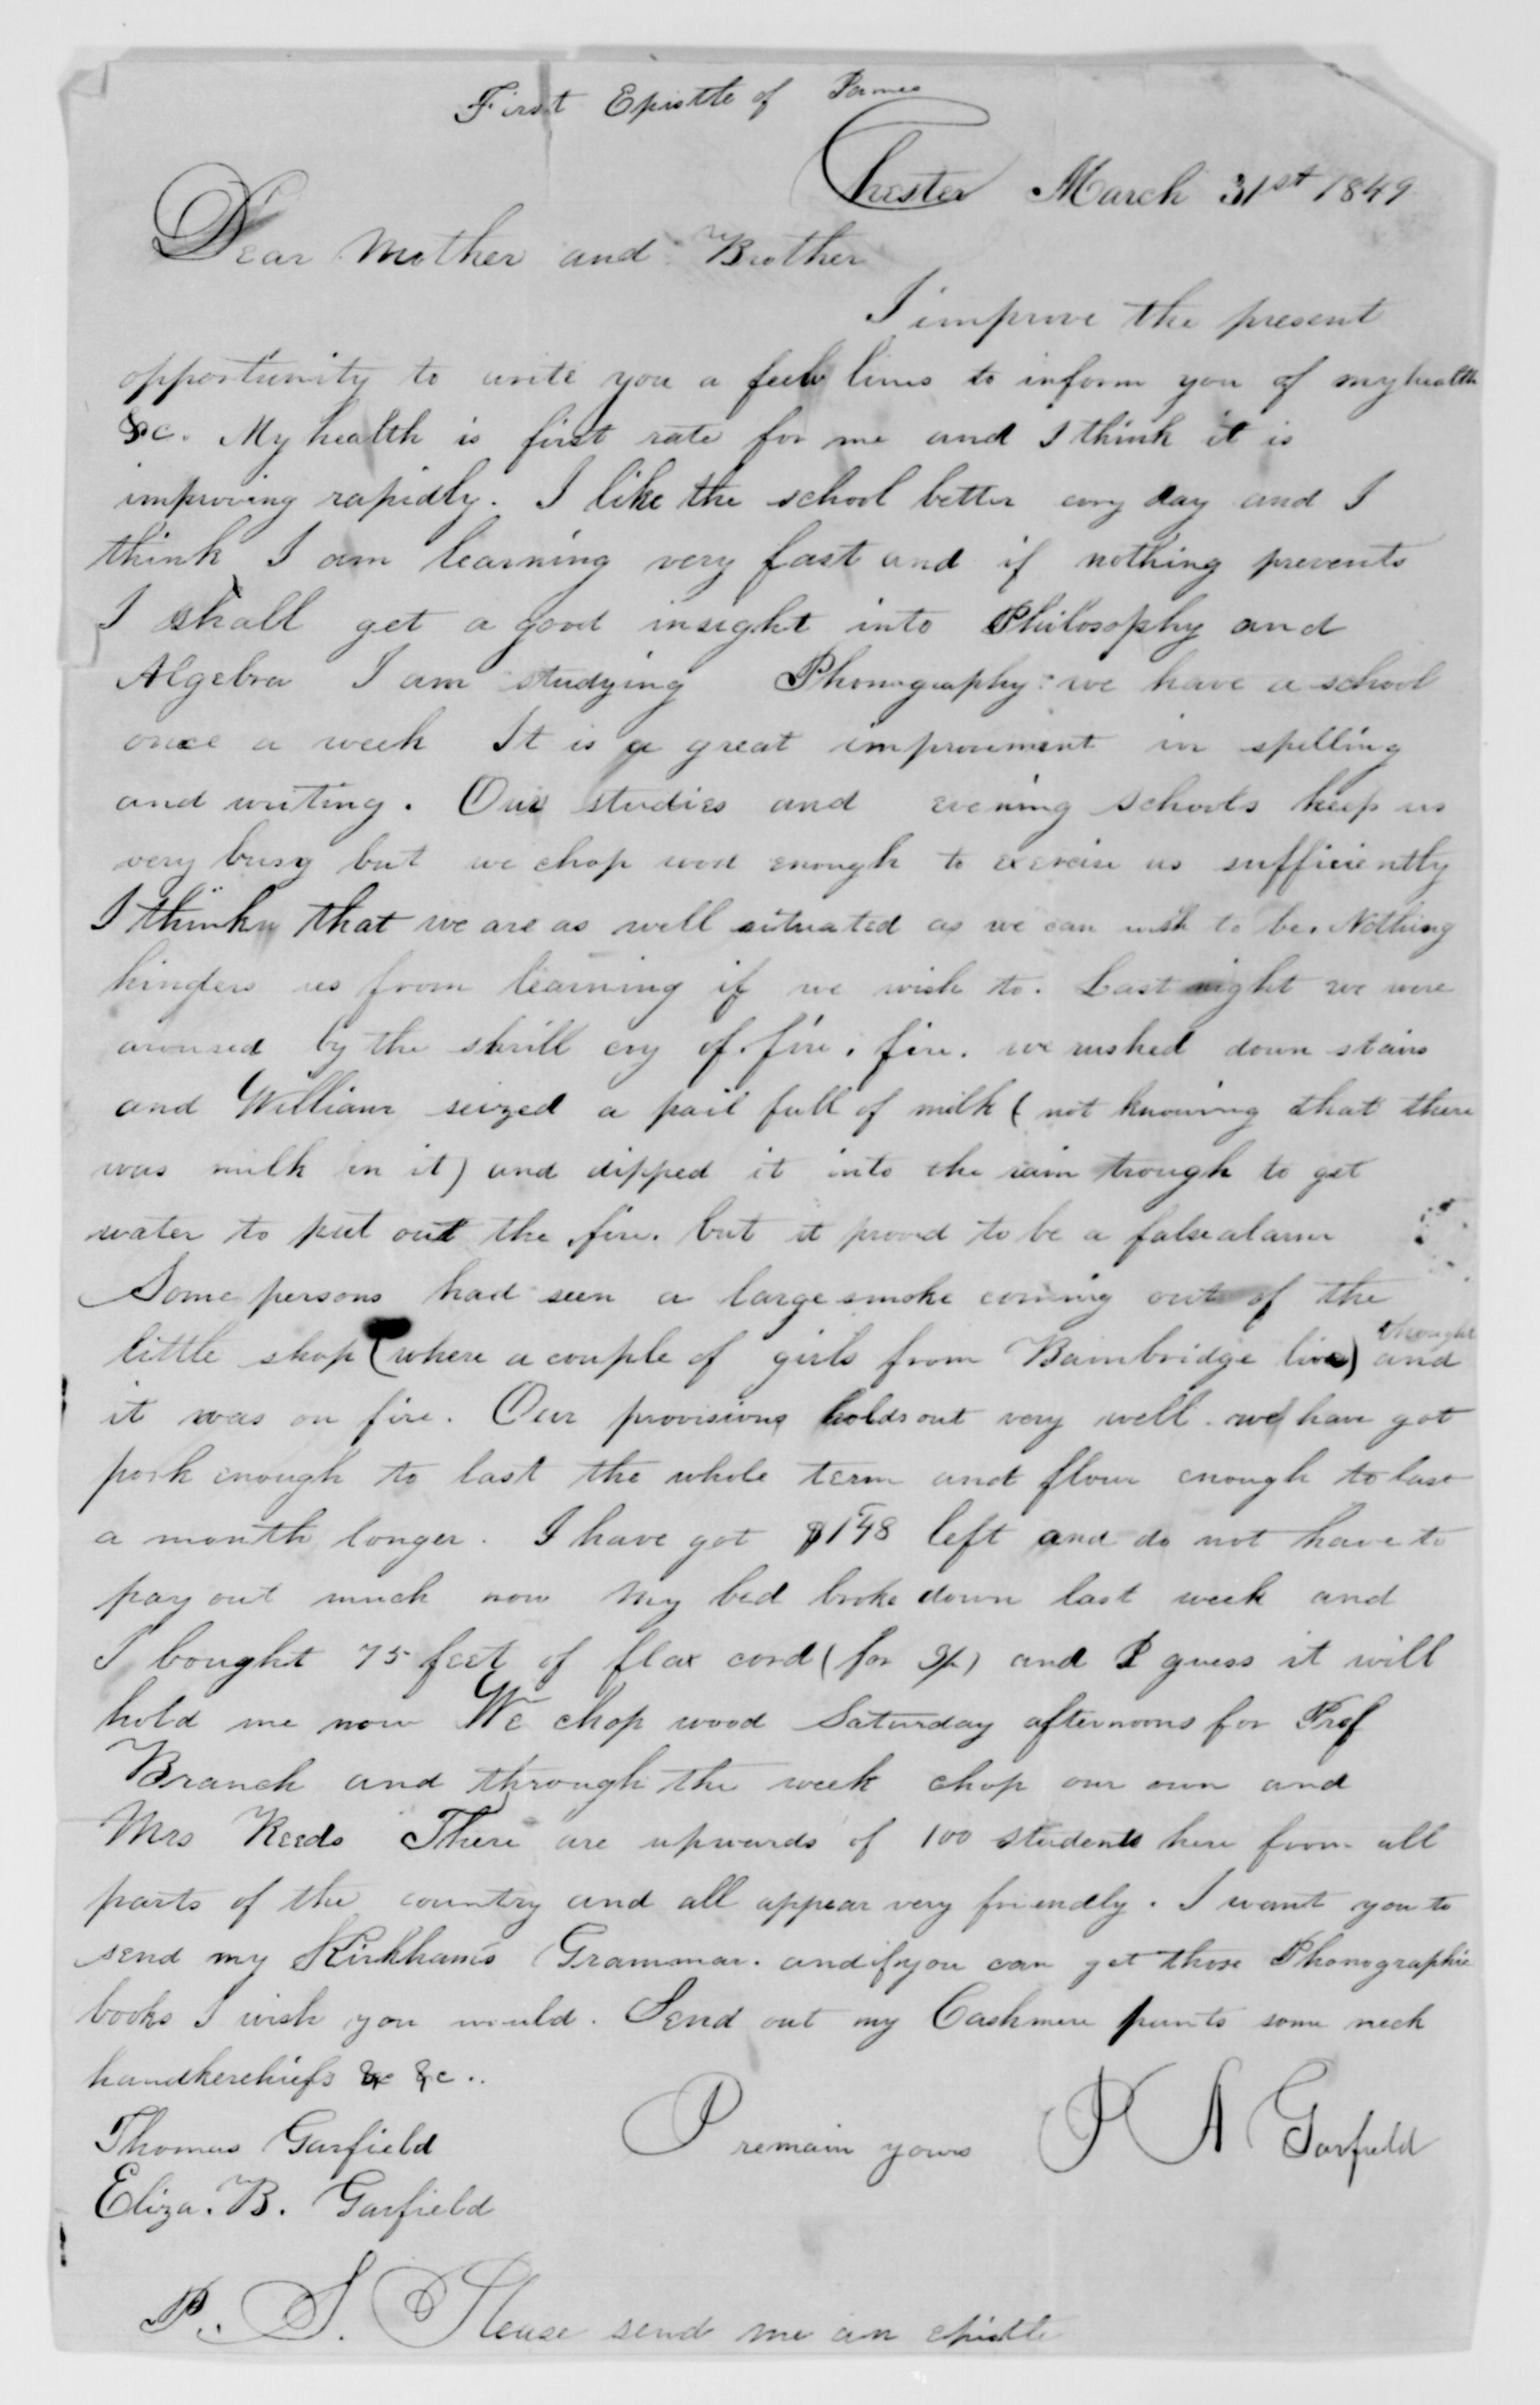 First Epistle of James
Chester March 31st 1849
Dear Mother and Brother
I improve the present
opportunity to write you a few lines to inform you of my health
&c. My health is first rate for me and I think it is
improving rapidly. I like the school better evry day and I
think I am learning very fast and if nothing prevents
I shall get a good insight into Philosophy and
Algebra I am studying Phonography we have a school
once a week It is a great improvement in spelling
and writing. Our studies and evening schools keep us
very busy but we chop wood enough to exercise us sufficiently
I think that we are as well situated as we can wish to be. Nothing
hinders us from learning if we wish to. Last night we were
aroused by the shrill cry of fire, fire. we rushed down stairs
and William seized a pail full of milk (not knowing that there
was milk in it) and dipped it into the rain trough to get
water to put out the fire. but it proved to be a false alarm
Some persons had seen a large smoke coming out of the
little shop (where a couple of girls from Bambridge live) and thought
it was on fire. Our provisions holds out very well. we have got
pork enough to last the whole term and flour enough to last
a month longer. I have got $1 48 left and do not have to
pay out much now My bed broke down last week and
I bought 75 feet of flax cord (for ) and I guess it will
hold me now We chop wood Saturday afternoons for Prof
Branch and through the week chop our own and
Mrs Reeds There are upwards of 100 students here from all
parts of the country and all appear very friendly. I want you to
send my Kirkham's Grammar. and if you can get those Phonographic
books I wish you would. Send out my Cashmere pants some neck
handkerchiefs &c &c..
Thomas Garfield I remain yours J A Garfield
Eliza. B. Garfield
P. S. Please send me an epistle